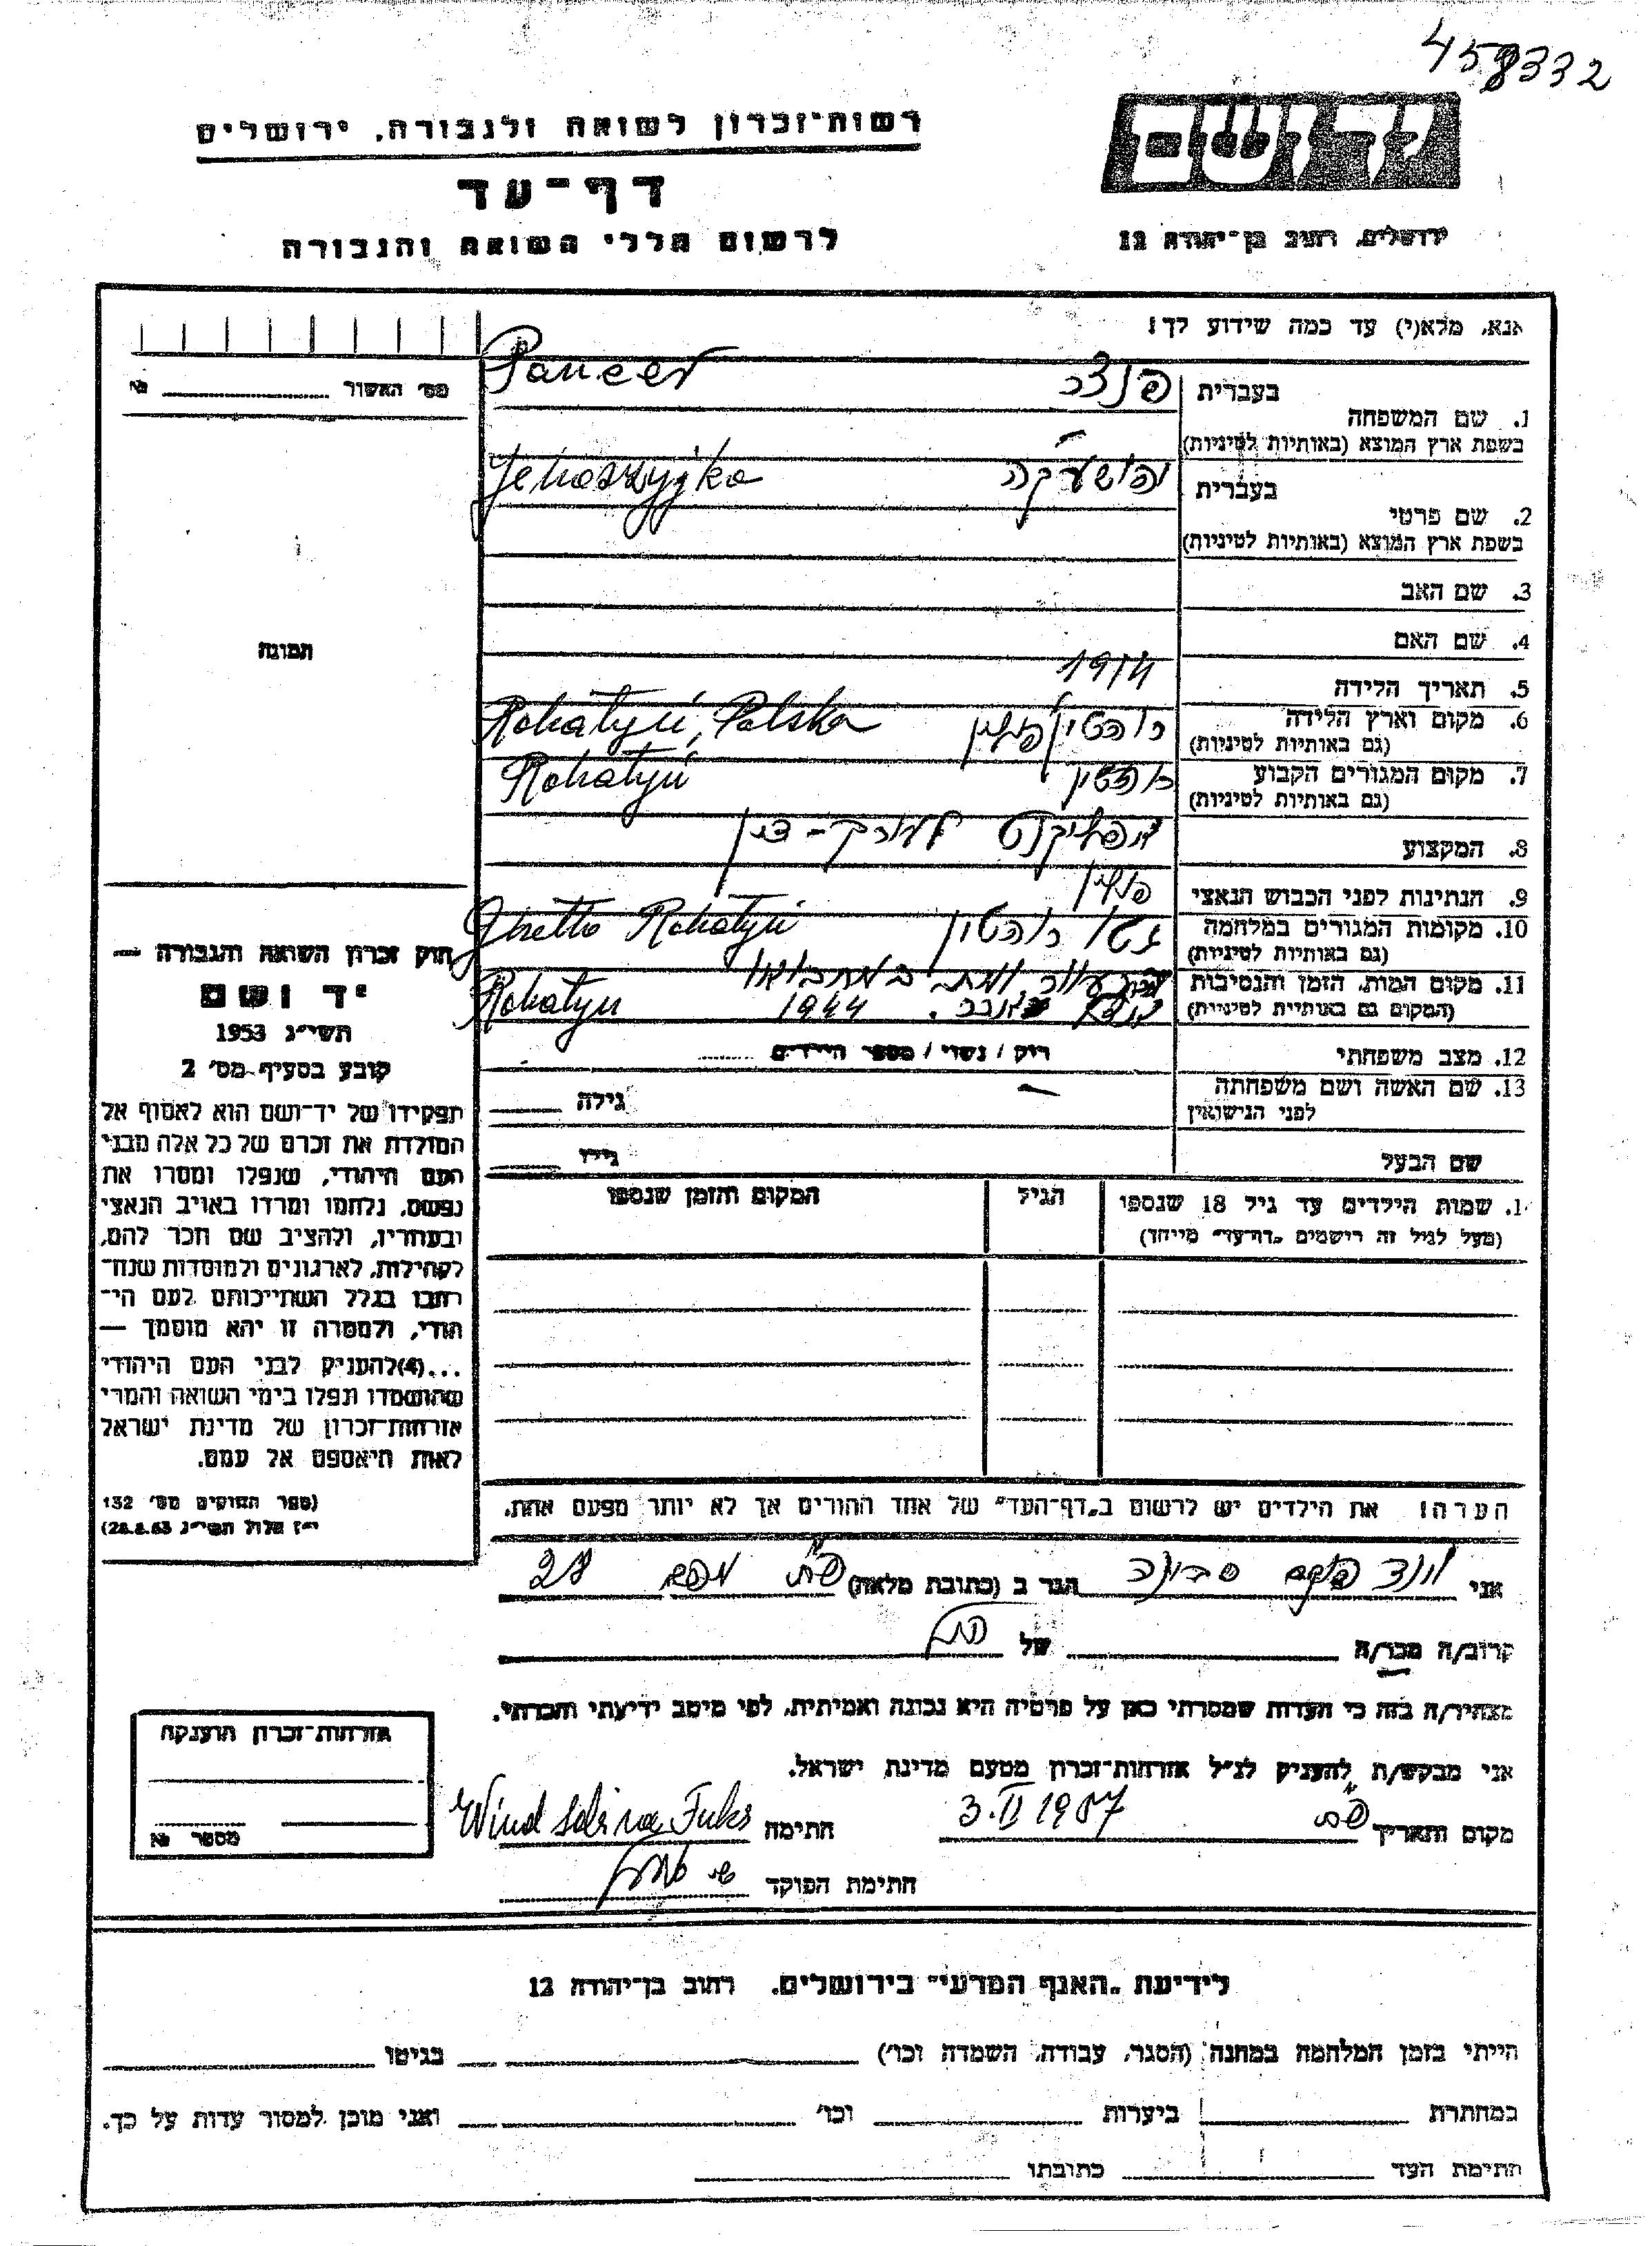 458332
רשות-זכרון לשואה ולגבורה, ירושלים
דף-עד
לרשום חללי השואה והגבורה
יד ושם
ירושלים, רחוב בן-יהודה 12
אנא, מלא(י) עד כמה שידוע לך!
מס' האשור № ........
1. שם המשפחה בעברית פנצר Pancer
בשפת ארץ המוצא (באותיות לטיניות)
2. שם פרטי בעברית Jehoszyjka
בשפת ארץ המוצא (באותיות לטיניות)
3. שם האב
4. שם האם
תמונה
5. תאריך הלידה 1914
6. מקום וארץ הלידה רוהטין פולין Rohatyń, Polska
(גם באותיות לטיניות)
7. מקום המגורים הקבוע רוהטין Rohatyń
(גם באותיות לטיניות)
8. המקצוע אפליקנט לעורך-דין
9. הנתינות לפני הכבוש הנאצי פולין
10. מקומות המגורים במלחמה גטו רוהטין Ghetto Rohatyń
(גם באותיות לטיניות)
11. מקום המות, הזמן והנסיבות
(המקום גם באותיות לטיניות) 1944 Rohatyn
12. מצב משפחתי רוק / נשוי / מספר הילדים ........
13. שם האשה ושם משפחתה לפני הנישואין גילה
שם הבעל גילו
14. שמות הילדים עד גיל 18 שנספו
(מעל לגיל זה רישמים "דף-עד" מייחד)
הגיל
המקום והזמן שנספו
חוק זכרון השואה והגבורה —
יד ושם
תשי"ג 1953
קובע בסעיף מס' 2
תפקידו של יד-ושם הוא לאסוף אל
המולדת את זכרם של כל אלה מבני
העם היהודי, שנפלו ומסרו את
נפשם, נלחמו ומרדו באויב הנאצי
ובעוזריו, ולהציב שם וזכר להם,
לקהילות, לארגונים ולמוסדות שנח-
רבו בגלל השתייכותם לעם הי-
הודי, ולמטרה זו יהא מוסמך —
...(4)להעניק לבני העם היהודי
שהושמדו ונפלו בימי השואה והמרי
אזרחות-זכרון של מדינת ישראל
לאות היאספם אל עמם.
(ספר החוקים מס' 132
י"ז אלול תשי"ג 28.8.53)
הערה! את הילדים יש לרשום ב"דף-העד" של אחד ההורים אך לא יותר מפעם אחת.
אני וינד פוקס סבינה הגר ב (כתובת מלאה) 28
קרוב/ה מכר/ה של
מצהיר/ה בזה כי העדות שמסרתי כאן על פרטיה היא נכונה ואמיתית, לפי מיטב ידיעתי והכרתי.
אני מבקש/ת להעניק לנ"ל אזרחות-זכרון מטעם מדינת ישראל.
מקום ותאריך 3.II 1987 חתימה Wind Sabina Fuks
חתימת הפוקד
אזרחות-זכרון הוענקה
מספר №
לידיעת "האגף המדעי" בירושלים, רחוב בן-יהודה 12
הייתי בזמן המלחמה במחנה (הסגר, עבודה, השמדה וכו') בגיטו
במחתרת ביערות וכו' ואני מוכן למסור עדות על כך.
חתימת העד כתובתו